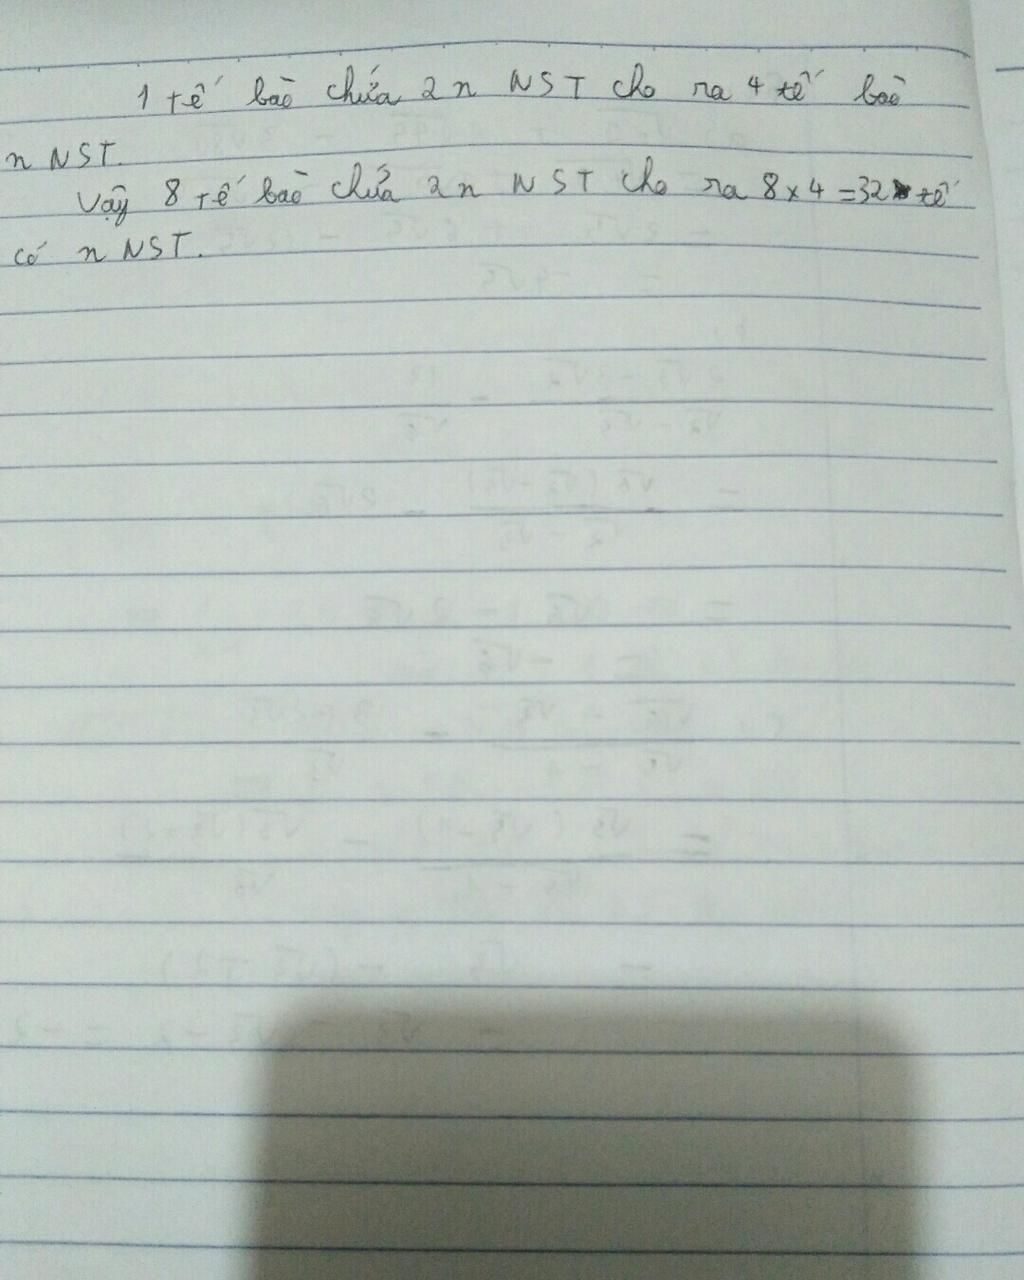 1 tế bào chứa 2n NST cho ra 4 tế bào
n NST.
Vậy 8 tế bào chứa 2n NST cho ra 8 x 4 = 32 tế
có n NST.